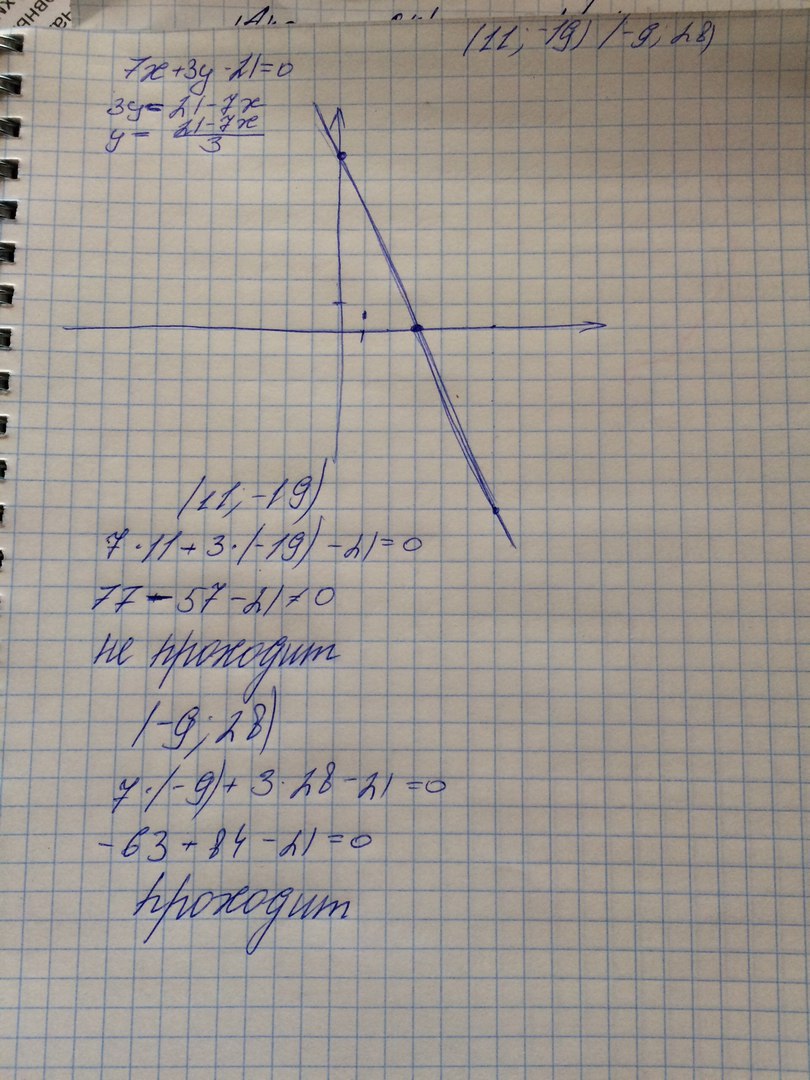 (11; -19) (-9; 28)
7x+3y-21=0
3y=21-7x
y= 21-7x
3
1
(11; -19)
7·11+3·(-19)-21=0
77-57-21≠0
не проходит
(-9; 28)
7·(-9)+3·28-21=0
-63+84-21=0
проходит